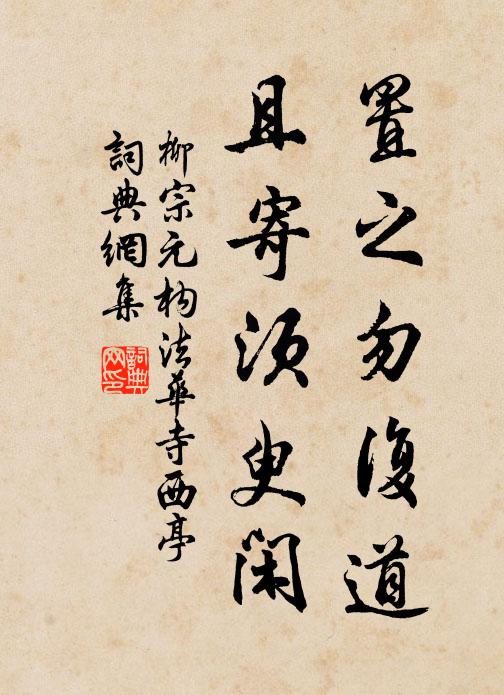 置之勿復道
且寄須臾閑
柳宗元构法華寺西亭
詞典網集
詞典網印